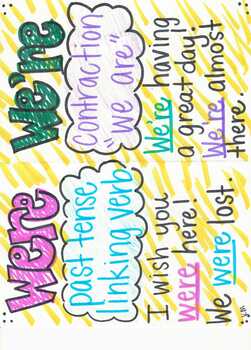 We're
Contraction
"We are"
We're having
a great day!
We're almost
there.
were
past tense
linking verb
I wish you
were here!
We were lost.